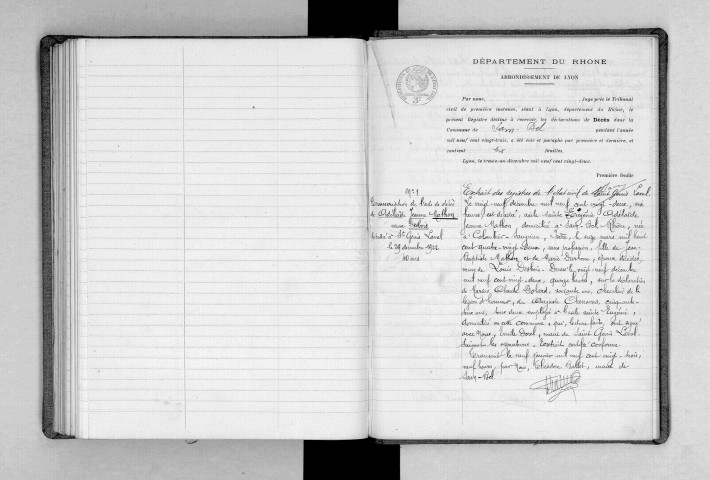 DÉPARTEMENT DU RHONE
ARRONDISSEMENT DE LYON
Par nous, , Juge près le Tribunal
civil de première instance, séant à Lyon, département du Rhône, le
présent Registre destiné à recevoir les déclarations de Décès dans la
Commune de Sain-Bel pendant l'année
mil neuf cent vingt-trois, a été coté et paraphé par première et dernière, et
contient six feuilles.
Lyon, le trente-un décembre mil neuf cent vingt-deux.
Première feuille
N° 1
Transcription de l'acte de décès
de Adélaïde Jeanne Mathon
veuve
décédée à St Genis Laval
le 29 décembre 1922
40 ans
Extrait des registres de l'état civil de Saint Genis Laval.
Le vingt-neuf décembre mil neuf cent vingt-deux,
heures, est décédée, asile Sainte Eugénie, Adélaïde
Jeanne Mathon domiciliée à Sain-Bel Rhône, née
à Colombier-Saugnieu, Isère, le onze mars mil huit
cent quatre-vingt deux, sans profession, fille de Jean
Baptiste Mathon et de Marie, époux décédés,
veuve de Louis. Dressé le vingt-neuf décembre
mil neuf cent vingt-deux, quinze heures, sur la déclaration
de Claude, soixante ans, chevalier de la
légion d'honneur, et Auguste, cinquante-
deux ans, tous deux employés à l'asile Sainte Eugénie,
domiciliés en cette commune, qui, lecture faite, ont signé
avec Nous, Emile, maire de Saint Genis Laval.
Suivent les signatures. Extrait certifié conforme.
Transcrit le neuf janvier mil neuf cent vingt-trois,
neuf heures, par Nous, Théodore, maire de
Sain-Bel.